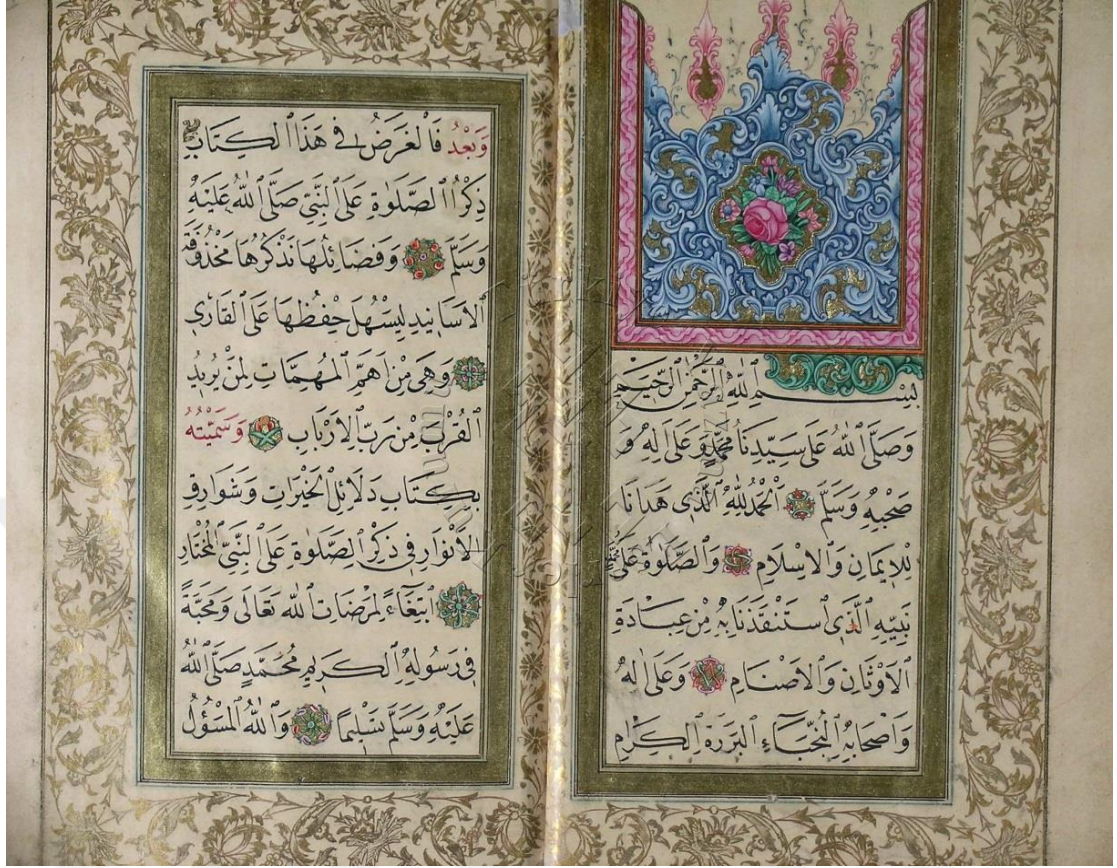 بِسْمِ ٱللّٰهِ ٱلرَّحْمٰنِ ٱلرَّحِيمِ
وَصَلَّى ٱللّٰهُ عَلٰى سَيِّدِنَا مُحَمَّدٍ وَعَلٰى اٰلِهٖ وَ
صَحْبِهٖ وَسَلَّمَ اَلْحَمْدُ لِلّٰهِ ٱلَّذٖى هَدَانَا
لِلْاٖيمَانِ وَٱلْاِسْلَامِ وَٱلصَّلٰوةُ عَلٰى مُحَمَّدٍ
نَبِيِّهِ ٱلَّذٖى ٱسْتَنْقَذَنَا بِهٖ مِنْ عِبَادَةِ
ٱلْاَوْثَانِ وَٱلْاَصْنَامِ وَعَلٰى اٰلِهٖ
وَاَصْحَابِهِ ٱلنُّجَبَٓاءِ ٱلْبَرَرَةِ ٱلْكِرَامِ
وَبَعْدُ فَٱلْغَرَضُ فٖى هٰذَا ٱلْكِتَابِ
ذِكْرُ ٱلصَّلٰوةِ عَلَى ٱلنَّبِيِّ صَلَّى ٱللّٰهُ عَلَيْهِ
وَسَلَّمَ وَفَضَائِلُهَا نَذْكُرُهَا مَحْذُوفَةَ
ٱلْاَسَانٖيدِ لِيَسْهُلَ حِفْظُهَا عَلَى ٱلْقَارِئِ
وَهِيَ مِنْ اَهَمِّ ٱلْمُهِمَّاتِ لِمَنْ يُرٖيدُ
ٱلْقُرْبَ مِنْ رَبِّ ٱلْاَرْبَابِ وَسَمَّيْتُهُ
بِكِتَابِ دَلَائِلِ ٱلْخَيْرَاتِ وَشَوَارِقِ
ٱلْاَنْوَارِ فٖى ذِكْرِ ٱلصَّلٰوةِ عَلَى ٱلنَّبِيِّ ٱلْمُخْتَارِ
اِبْتِغَٓاءً لِمَرْضَاتِ ٱللّٰهِ تَعَالٰى وَمَحَبَّةً
فٖى رَسُولِهِ ٱلْكَرٖيمِ مُحَمَّدٍ صَلَّى ٱللّٰهُ
عَلَيْهِ وَسَلَّمَ تَسْلٖيمًا وَٱللّٰهُ ٱلْمَسْؤُلُ